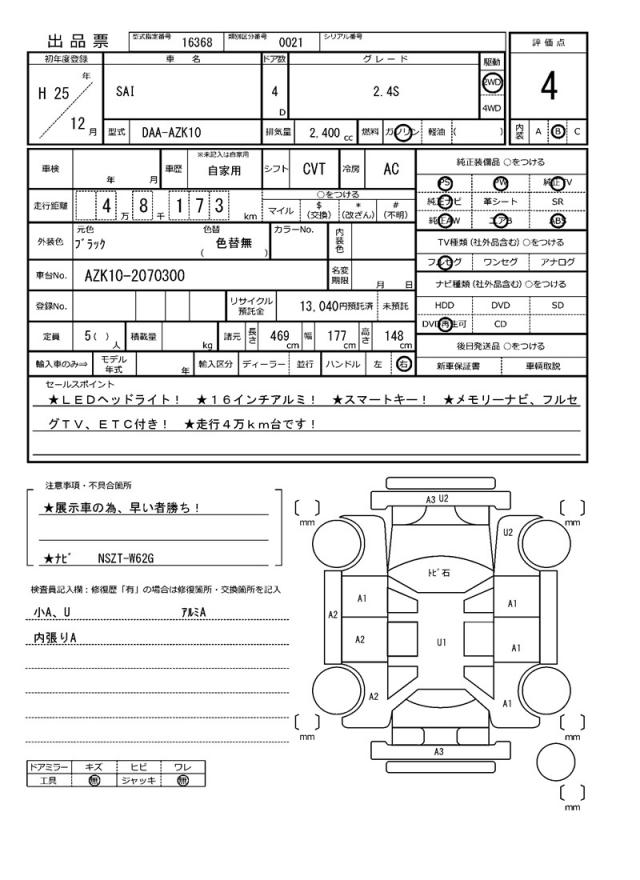 出品票 型式指定番号 16368 類別区分番号 0021 シリアル番号
評価点
初年度登録 車 名 ドア数 グレード 駆動
H 25 年 SAI 4 D 2.4S 2WD 4WD 4
12 月 型式 DAA-AZK10 排気量 2,400 cc 燃料 ガソリン 軽油 ( ) 内装 A B C
車検 年 月 車歴 ※未記入は自家用 自家用 シフト CVT 冷房 AC
走行距離 4 万 8 千 1 7 3 km ○をつける
マイル $ (交換) * (改ざん) # (不明)
外装色 元色 ブラック 色替 色替無 ( ) カラーNo. 内装色
車台No. AZK10-2070300 名変期限 月 日
登録No. リサイクル預託金 13,040円預託済 未預託
定員 5( ) 人 積載量 kg 諸元 長さ 469 cm 幅 177 cm 高さ 148 cm
輸入車のみ⇒ モデル年式 年 輸入区分 ディーラー 並行 ハンドル 左 右
純正装備品 ○をつける
PS PW 純正TV
純正ナビ 革シート SR
純正AW エアB ABS
TV種類(社外品含む) ○をつける
フルセグ ワンセグ アナログ
ナビ種類(社外品含む) ○をつける
HDD DVD SD
DVD再生可 CD
後日発送品 ○をつける
新車保証書 車輌取説
セールスポイント
★LEDヘッドライト! ★16インチアルミ! ★スマートキー! ★メモリーナビ、フルセ
グTV、ETC付き! ★走行4万km台です!
注意事項・不具合箇所
★展示車の為、早い者勝ち!
★ナビ NSZT-W62G
検査員記入欄:修復歴「有」の場合は修復箇所・交換箇所を記入
小A、U アルミA
内張りA
ドアミラー キズ ヒビ ワレ
工具 無 ジャッキ 無
A3 U2
[ ] mm [ ] mm
U2
トビ石
A1 A1
A2
A2 U1 A1
A2 A1
[ ] mm [ ] mm
A3
[ ] mm